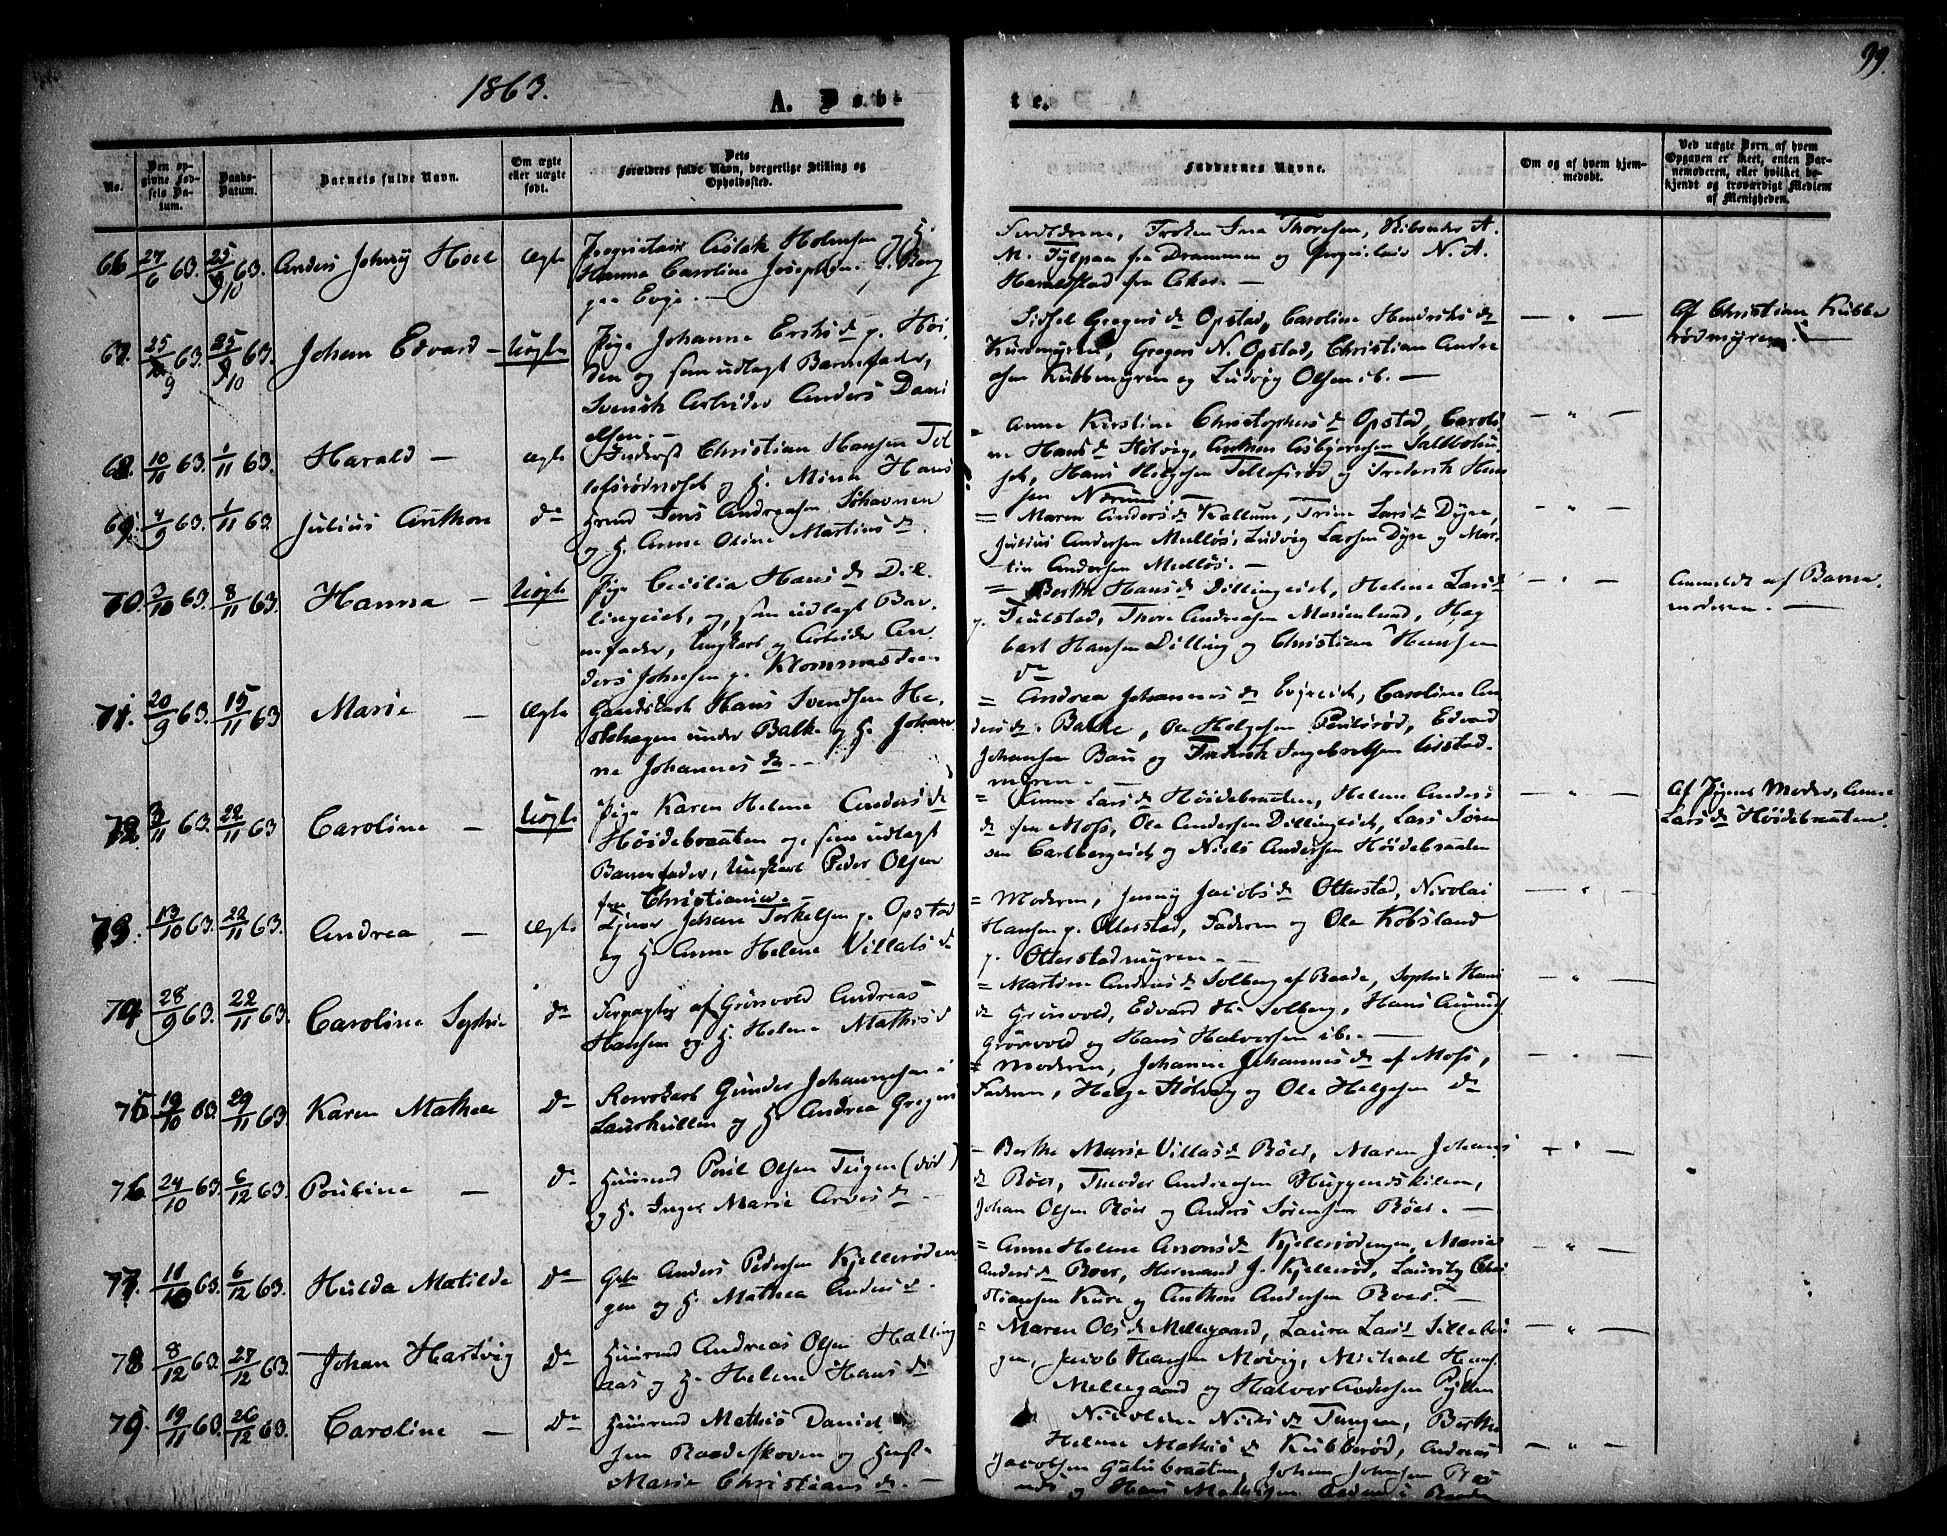 1863.
A. Døbte.
99.
No.
Den opgivne Fødsels Datum.
Daabs-Datum.
Barnets fulde Navn.
Om ægte eller uægte født.
Dets Forældres fulde Navn, borgerlige Stilling og Opholdssted.
Faddernes Navne.
Om og af hvem hjemmedøbt.
Ved uægte Børn af hvem Opgaven er skeet, enten Barnemoderen, eller hvilket bekjendt og troværdigt Medlem af Menigheden.
66 27/6 63. 25/10 63. Anders Johnny Hoel Ægte
Proprietair Aslak Holmsen og H.
Hanna Caroline Josephine, f. Berg
paa Evje. —
Forældrene, Frøken Ina Thoresen,
fra Drammen og N. A.
Haraldstad fra Aker. —
67. 25/9 63 25/10 63. Johan Edvard — Uægte
Pige Johanne Ersds p. Høi
den og som udlagt Barnefader,
Svensk Arbeider Anders Dani
elsen. —
Sidsel Gregersdr Opstad, Caroline Hendriksdr
Kubbmyren, Gregers N. Opstad, Christian Andre
asen Kubbmyren og Ludvig Olsen ib. —
— " —
Af Christian Kubbe
rødmyren. —
68. 10/10 63. 1/11 63. Harald — ægte
Inderst Christian Hansen Tel
lefsrødneset og H. Mina Hans
= Anne Kirstine Christophersdr Opstad, Caroli
ne Hansdr Stølvig, Anthon Asbjørnsen Saltbohu
set, Hans Helgesen Tellefsrød og Frederik Han
sen Nærum. —
— " —
69. 4/9 63. 1/11 63. Julius Anthon do
Grmd Jens Andreasen Søhavnen
og H. Anne Oline Martinsdr.
= Maren Andersdr Kallum, Trine Larsdr Dyre,
Julius Andersen Melløs, Ludvig Larsen Dyre og Mar
tin Andersen Melløs. —
— " —
70. 3/10 63. 8/11 63. Hanna — Uægte
Pige Cecilia Hansdr Dil
lingeiet, og, som udlagt Bar
nefader, Ungkarl og Arbeider An
ders Johnsen p. Krommesteen
= Berthe Hansdr Dillingeiet, Helene Larsdr
p. Teulstad, Thore Andreasen Marienlund, Hag
bart Hansen Dilling og Christian Hansen
do
— " —
Anmeldt af Barne
moderen. —
71. 20/9 63. 15/11 63 Marie — Ægte
Gaardskarl Hans Svendsen He
stehagen under Balke og H. Johan
ne Johannesdr. —
= Andrea Johannesdr Evjeeiet, Caroline An
dersdr Balke, Ole Helgesen Poulsrød, Edvard
Johansen Bau og Fredrik Ingebretsen Aisstad
myren. —
72. 3/11 63. 22/11 63 Caroline — Uægte
Pige Karen Helene Andersdr
Høidebraaten og, som udlagt
Barnefader, Ungkarl Peder Olsen
fra Christiania. —
= Anne Larsdr Høidebraaten, Helene Anders
dr fra Moss, Ole Andersen Dillingeiet, Lars Søren
sen Carlbergeiet og Niels Andersen Høidebraaten
— " —
Af Pigens Moder, Anne
Larsdr Høidebraaten.
73. 13/10 63. 22/11 63. Andrea — Ægte
Tjener Johan Torkelsen p. Opstad
og H. Anne Helene Villatsdr
= Moderen, Jenny Jacobsdr Otterstad, Nicolai
Hansen p. Otterstad, Faderen og Ole Kobsland
p. Otterstadmyren. —
— " —
74. 28/9 63. 22/11 63. Caroline Sophie do
Forpagter af Grønvold Andreas
Hansen og H. Helene Mathisd
= Martine Andersdr Solberg af Raade, Sophie Hans
dr Grønvold, Edvard H. Solberg, Hans Amunds
Grønvold og Hans Halvorsen ib. —
— " —
75 19/10 63. 29/11 63. Karen Mathea Do
Gunder Johannesen i
Laurkullen og H. Andrea Gregers
= Moderen, Johanne Johannesdr af Moss,
Faderen, Helge Stølvig og Ole Helgesen do
— " —
76. 24/10 63. 6/12 63. Pouline — do
Huusmd Poul Olsen Teigen (død)
og H. Inger Marie Arvesdr —
= Berthe Marie Villasdr Røer, Maren Johans
dr Røer, Theodor Andreasen Huggenskilen,
Johan Olsen Røer og Anders Sørensen Røer. —
— " —
77. 11/10 63. 6/12 63. Hulda Matilde Do
Anders Pedersen Kjellerøden
gen og H. Mathea Andersdr.
= Anne Helene Aronsdr Kjellerødengen, Maries
Andersdr Roer, Hermand J. Kjellerød, Lauritz Chri
stiansen Kure og Anthon Andersen Roer. —
— " —
78 8/12 63. 27/12 63. Johan Hartvig Do
Huusmd Andreas Olsen Halling
aas og H. Helene Hansdr
= Maren Olsdr Mellegaard, Laura Larsdr Sillebøi
gen, Jacob Hansen Movig, Michael Hans.
Mellegaard og Halvor Andersen Pylten
— " —
79. 19/11 63. 26/12 63. Caroline — Do
Huusmd Mathis Daniel
sen Raadeskoven og Hust
Marie Christiansdr. —
Nicoline Nielsdr Tungen, Berthe
Helene Mathisdr Kubberød, Andreas
Jacobsen Gulubraaten, Johan Johnsen Raa
— " —